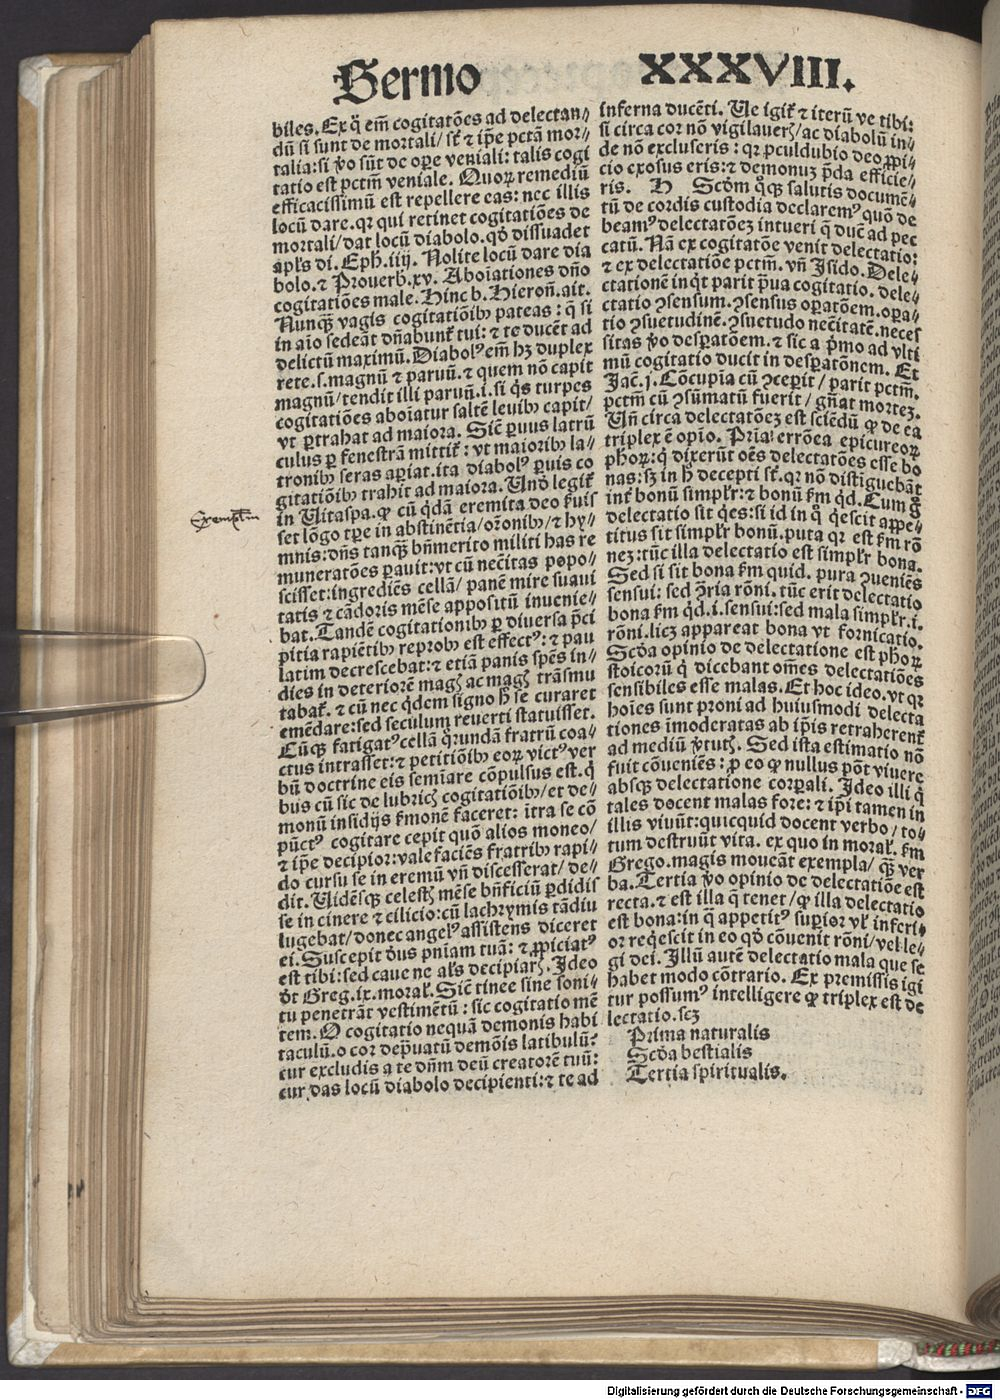 Sermo XXXVIII.
biles. Ex q̊ em̄ cogitatões ad delectan⸗
dũ si sunt de mortali / sũt ⁊ ip̄e pctā mor⸗
talia: si ṽo sũt de oꝑe veniali: talis cogi
tatio est pctm̄ veniale. Quoꝝ remediũ
efficacissimũ est repellere eas: nec illis
locũ dare. qꝛ qui retinet cogitatiões de
mortali / dat locũ diabolo. qđ dissuadet
apl's di. Eph. iiij. Nolite locũ dare dia
bolo. ⁊ Prouerb. xv. Aboiationes dño
cogitatiões male. Hinc b. Hieroñ. ait.
Nunq̃ꝫ vagis cogitatiõibꝰ pateas: q̃ si
in aĩo sedeãt dñabunt̃ tui: ⁊ te ducẽt ad
delictũ maximũ. Diabolꝰ em̄ hꝫ duplex
rete. s. magnũ ⁊ paruũ. ⁊ quem nõ capit
magnũ / tendit illi paruũ. i. si q̃s turpes
cogitatiões aboiatur saltẽ leuibꝰ capit /
vt ꝑtrahat ad maiora. Sic̃ ꝑuus latrũ
culus ꝑ fenestrã mittit̃: vt maioribꝰ la⸗
tronibꝰ seras aꝑiat. ita diabolꝰ ꝑuis co
gitatiõibꝰ trahit ad maiora. Vnđ legit̃
in Vitaspa. ꝙ cũ q̃dã eremita deo s̃uis
set lõgo tꝑe in abstinẽtia / orõnibꝰ / ⁊ hy⸗
mnis: dñs tanq̃ꝫ bñmerito militi has re
muneratões ꝑauit: vt cũ necĩtas popo⸗
scisset: ingrediẽs cellã / panẽ mire suaui
tatis ⁊ cãdoris mẽse appositũ inuenie⸗
bat. Tandẽ cogitationibꝰ ꝑ diuersa p̃ci
pitia rapiẽtibꝰ reprobꝰ est effectꝰ: ⁊ pau
latim decrescebat: ⁊ etiã panis spẽs in⸗
dies in deteriorẽ magꝭ ac magꝭ trãsmu
tabat̃. ⁊ cũ nec q̃dem signo h̃ se curaret
emẽdare: sed seculum reuerti statuisset.
Cũqꝫ fatigatꝰ cellã q̃rundã fratrũ coa⸗
ctus intrasset: ⁊ petitiõibꝰ eoꝝ victꝰ ver
bũ doctrine eis semĩare cõpulsus est. q̃
bus cũ sic de lubricꝭ cogitatiõibꝰ / et de⸗
monũ insidijs s̃monẽ faceret: ĩtra se cõ
pũctꝰ cogitare cepit quõ alios moneo /
⁊ ip̃e decipior: vale faciẽs fratribꝰ rapi⸗
do cursu se in eremũ vñ discesserat / de⸗
dit. Vidẽsqꝫ celestꝭ mẽse bñficiũ ꝑdidis
se in cinere ⁊ cilicio: cũ lachrymis tãdiu
lugebat / donec angelꝰ assistens diceret
ei. Suscepit dẽus pñiam tuã: ⁊ ꝓpiciatꝰ
est tibi: sed caue ne al's decipiarꝭ. Ideo
đt Greg. ix. moral'. Sic̃ tinee sine soni⸗
tu penetrãt vestimẽtũ: sic cogitatio mẽ
tem. O cogitatio nequã demonis habi
taculũ. o cor dep̃uatũ demõis latibulũ:
cur excludis a te dñm deũ creatorẽ tuũ:
cur das locũ diabolo decipienti: ⁊ te ad
inferna ducẽti. Ve igit̃ ⁊ iterũ ve tibi:
si circa cor nõ vigilauerꝭ / ac diabolũ in⸗
de nõ excluseris: qꝛ ꝓculdubio deo ꝓpi⸗
cio exosus eris: ⁊ demonuꝫ p̃da efficie⸗
ris. H Scđm q̊qꝫ salutis documẽ⸗
tũ de cordis custodia declaremꝰ quõ de
beamꝰ delectatõeꝫ intueri q̃ ducẽ ad pec
catũ. Nã ex cogitatõe venit delectatio:
⁊ ex delectatiõe pctm̃. vñ Isido. Dele⸗
ctationẽ inq̃t parit p̃ua cogitatio. dele⸗
ctatio ꝯsensum. ꝯsensus oꝑatõem. oꝑa⸗
tio ꝯsuetudinẽ. ꝯsuetudo necĩtatẽ. neces
sitas ṽo desꝑatõem. ⁊ sic a p̃mo ad vlti
mũ cogitatio ducit in desꝑatõnem. Et
Jac. j. Cõcupĩa cũ ꝯceꝑit / parit pctm̃.
pctm̃ cũ ꝯsũmatũ fuerit / gñat morteꝫ.
Vñ circa delectatõeꝫ est sciẽdũ ꝙ de ea
triplex ẽ opĩo. Prĩa errõea epicureoꝝ
phoꝝ: q̃ dixerũt oẽs delectatões esse bo
nas: sꝫ in h̃ decepti sũt. qꝛ nõ distĩguebãt
int̃ bonũ simpl'r: ⁊ bonũ s̃m q̃d. Cum g̃
delectatio sit q̃es: si id in q̊ q̃escit appe⸗
titus sit simpl'r bonũ. puta qꝛ est s̃m rõ
neꝫ: tũc illa delectatio est simpl'r bona.
Sed si sit bona s̃m quid. pura ꝯueniẽs
sensui: sed ꝯ̃ria rõni. tũc erit delectatio
bona s̃m q̃d. i. sensui: sed mala simpl'r. i.
rõni. licꝫ appareat bona vt fornicatio.
Scđa opinio de delectatione est phoꝝ
stoicorũ q̃ dicebant om̃es delectatiões
sensibiles esse malas. Et hoc ideo. vt qꝛ
hoĩes sunt proni ad huiusmodi delecta
tiones ĩmoderatas ab ip̃is retraherent̃
ad mediũ ṽtutꝭ. Sed ista estimatio nõ
fuit cõueniẽs: ꝑ eo ꝙ nullus põt viuere
absqꝫ delectatione corꝑali. Ideo illi q̃
tales docent malas fore: ⁊ ip̃i tamen in
illis viuũt: quicquid docent verbo / to⸗
tum destruũt vita. ex quo in moral'. s̃m
Grego. magis moueãt exempla / q̃ꝫ ver
ba. Tertia ṽo opinio de delectatiõe est
recta. ⁊ est illa q̃ tenet / ꝙ illa delectatio
est bona: in q̃ appetitꝰ suꝑior vl' inferi⸗
or req̃escit in eo qđ cõuenit rõni / vel le⸗
gi dei. Illũ autẽ delectatio mala que se
habet modo cõtrario. Ex premissis igi
tur possumꝰ intelligere ꝙ triplex est de
lectatio. scꝫ
Prima naturalis
Scđa bestialis
Tertia spiritualis.
Exemplum
Digitalisierung gefördert durch die Deutsche Forschungsgemeinschaft - DFG